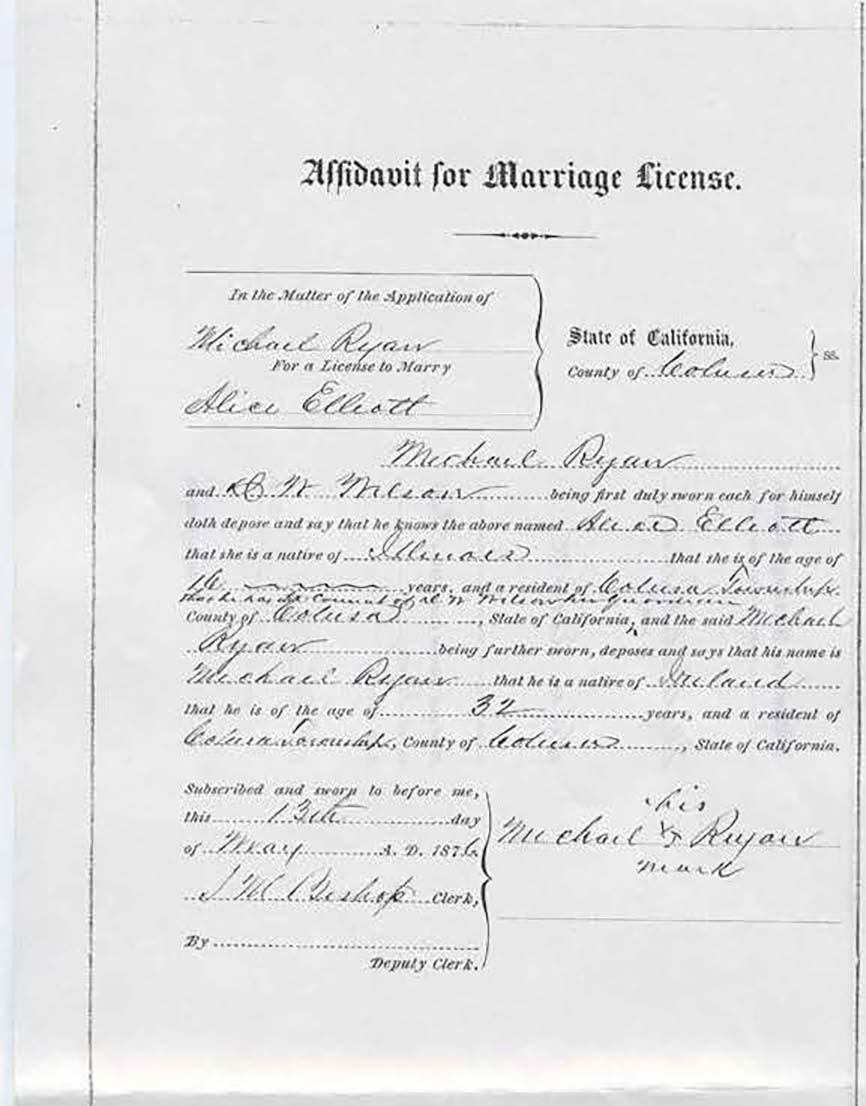 Affidavit for Marriage License.
In the Matter of the Application of
Michael Ryan
For a License to Marry
Alice Elliott
State of California,
County of Colusa } ss.
Michael Ryan
and W Wilson being first duly sworn each for himself
doth depose and say that he knows the above named Alice Elliott
that she is a native of Illinois that she is of the age of
16 years, and a resident of Colusa Township
that he has the consent of W Wilson her guardian
County of Colusa, State of California, and the said Michael
Ryan being further sworn, deposes and says that his name is
Michael Ryan that he is a native of Ireland
that he is of the age of 32 years, and a resident of
Colusa Township, County of Colusa, State of California.
Subscribed and sworn to before me,
this 13th day
of May A. D. 1876
Bishop Clerk,
By
Deputy Clerk.
his
Michael X Ryan
mark